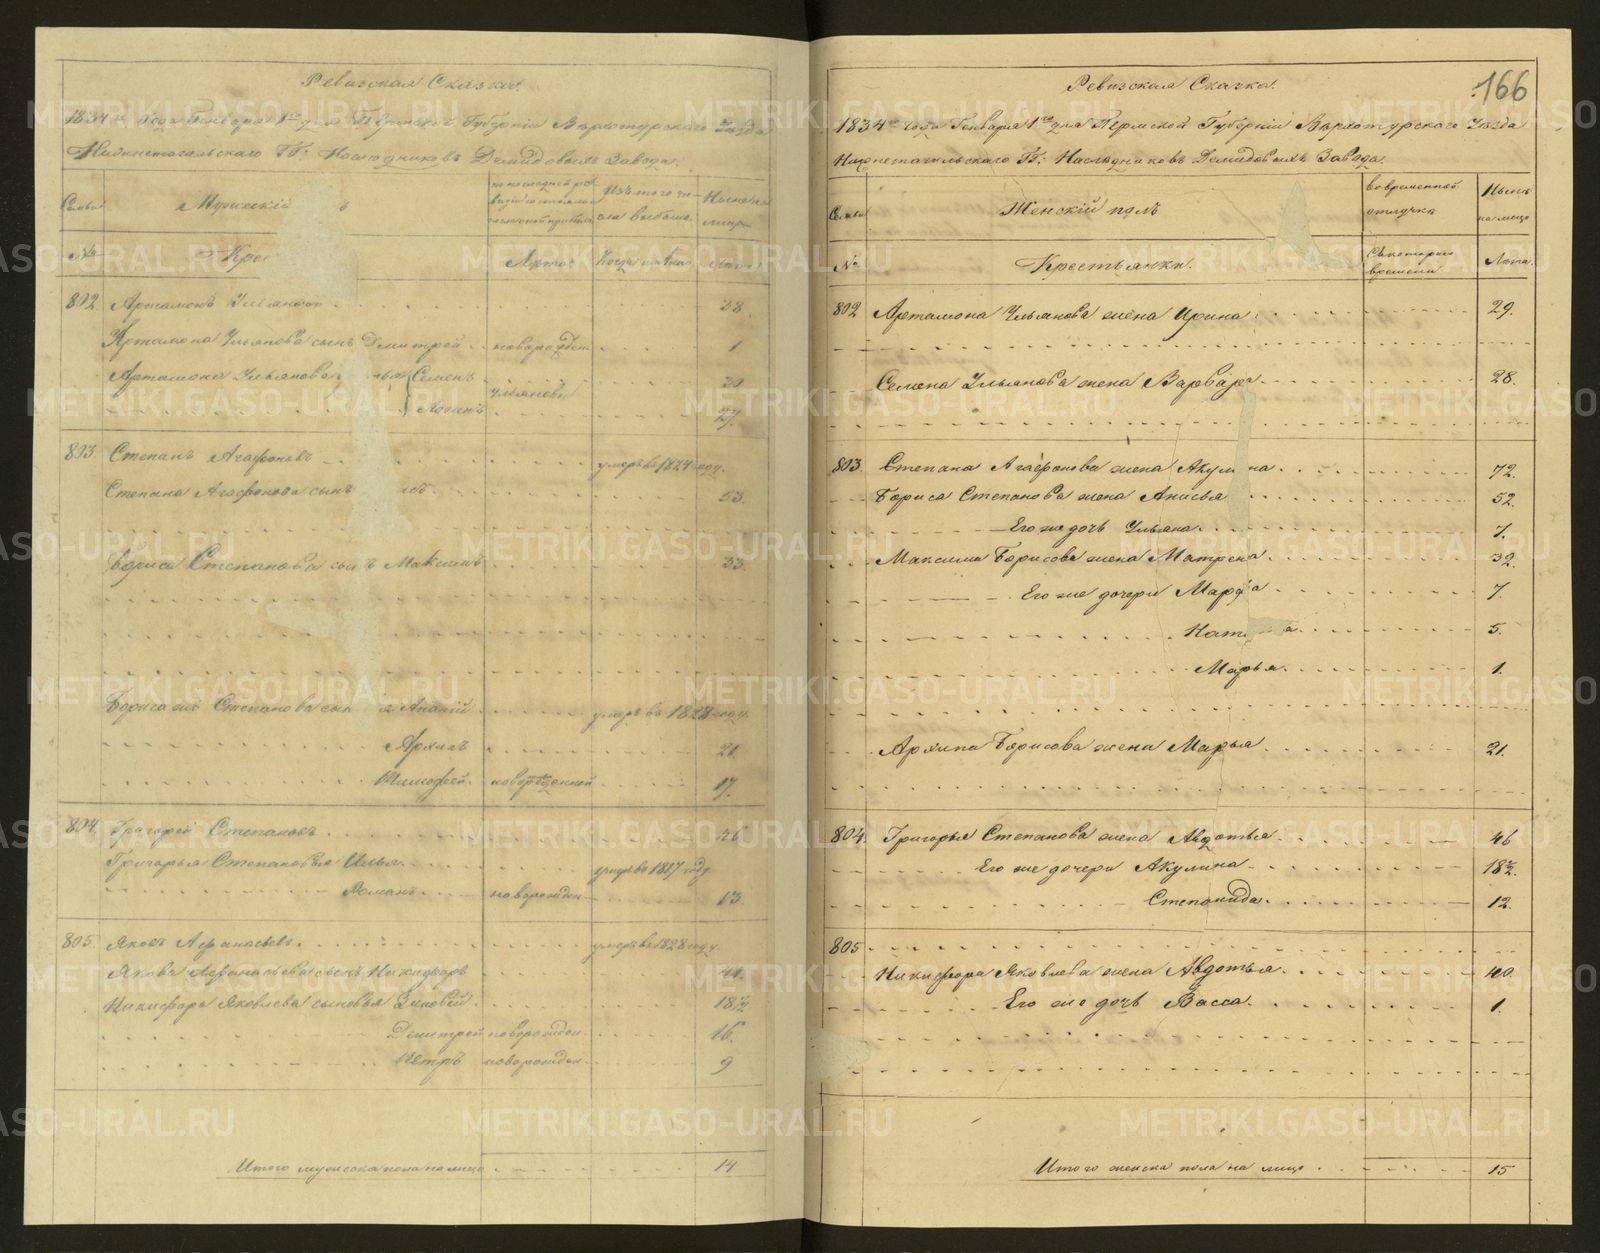 Ревизская Сказка.
1834го года Генваря 1го дня Пермской Губернии Верхотурскаго Уезда
Нижнетагильскаго ГГ: Наследниковъ Демидовыхъ Завода.
Семьи
Мужескій ъ
по последней ревизіи состояло
Изъ того числа выбыло.
Ныне на лицо
№
Крес
Лета.
Когда именно
Лета
802 Артамонъ Ульяновъ 38.
Артамона Ульянова сынъ Дмитрей новорожден. 1
Артамона Ульянова Семенъ 30
Ульяновы
27.
803 Степанъ Агафоновъ умеръ въ 1824 году.
Степана Агафонова сынъ 53.
Бориса Степанова сынъ Максимъ 33.
Бориса же Степанова сын я Ананій умеръ въ 1828 году.
Архипъ 21.
Тимофей новорожденной 17.
804 Григорей Степановъ 46
Григорья Степанова Илья умеръ въ 1817 году
Романъ новорожден. 13.
805. Яковъ Афанасьевъ. умеръ въ 1828 году.
Якова Афанасьева сынъ Никифоръ 41.
Никифора Яковлева сыновья Зиновій. 18½
Дмитрей новорожден. 16.
Петръ новорожден. 9
Итого мужеска пола на лицо 14
166
Ревизская Сказка.
1834го года Генваря 1го дня Пермской Губерніи Верхотурскаго Уезда
Нижнетагильскаго ГГ: Наследниковъ Демидовыхъ Завода.
Семьи
Женскій полъ
во временной отлучке
Ныне на лицо
№
Крестьянки.
Съ котораго времени
Лета.
802 Артамона Ульянова жена Ирина 29.
Семена Ульянова жена Варвара 28.
803. Степана Агафонова жена Акулина. 72.
Бориса Степанова жена Анисья 52.
Его же дочь Ульяна. 7.
Максима Борисова жена Матрена. 32.
Его же дочери Марфа 7.
Нат а. 5.
Марья. 1.
Архипа Борисова жена Марья 21.
804. Григорья Степанова жена Авдотья 46
Его же дочери Акулина 18½.
Степанида. 12.
805
Никифора Яковлева жена Авдотья. 40.
Его же дочь Васса. 1.
Итого женска пола на лицо 15
METRIKI.GASO-URAL.RU